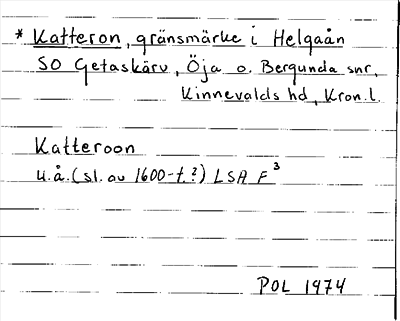 * Katteron, gränsmärke i Helgaån
SO Getaskärv, Öja o. Bergunda snr,
Kinnevalds hd, Kron.l.
Katteroon
u.å. (sl. av 1600-t.?) LSA F³
POL 1974